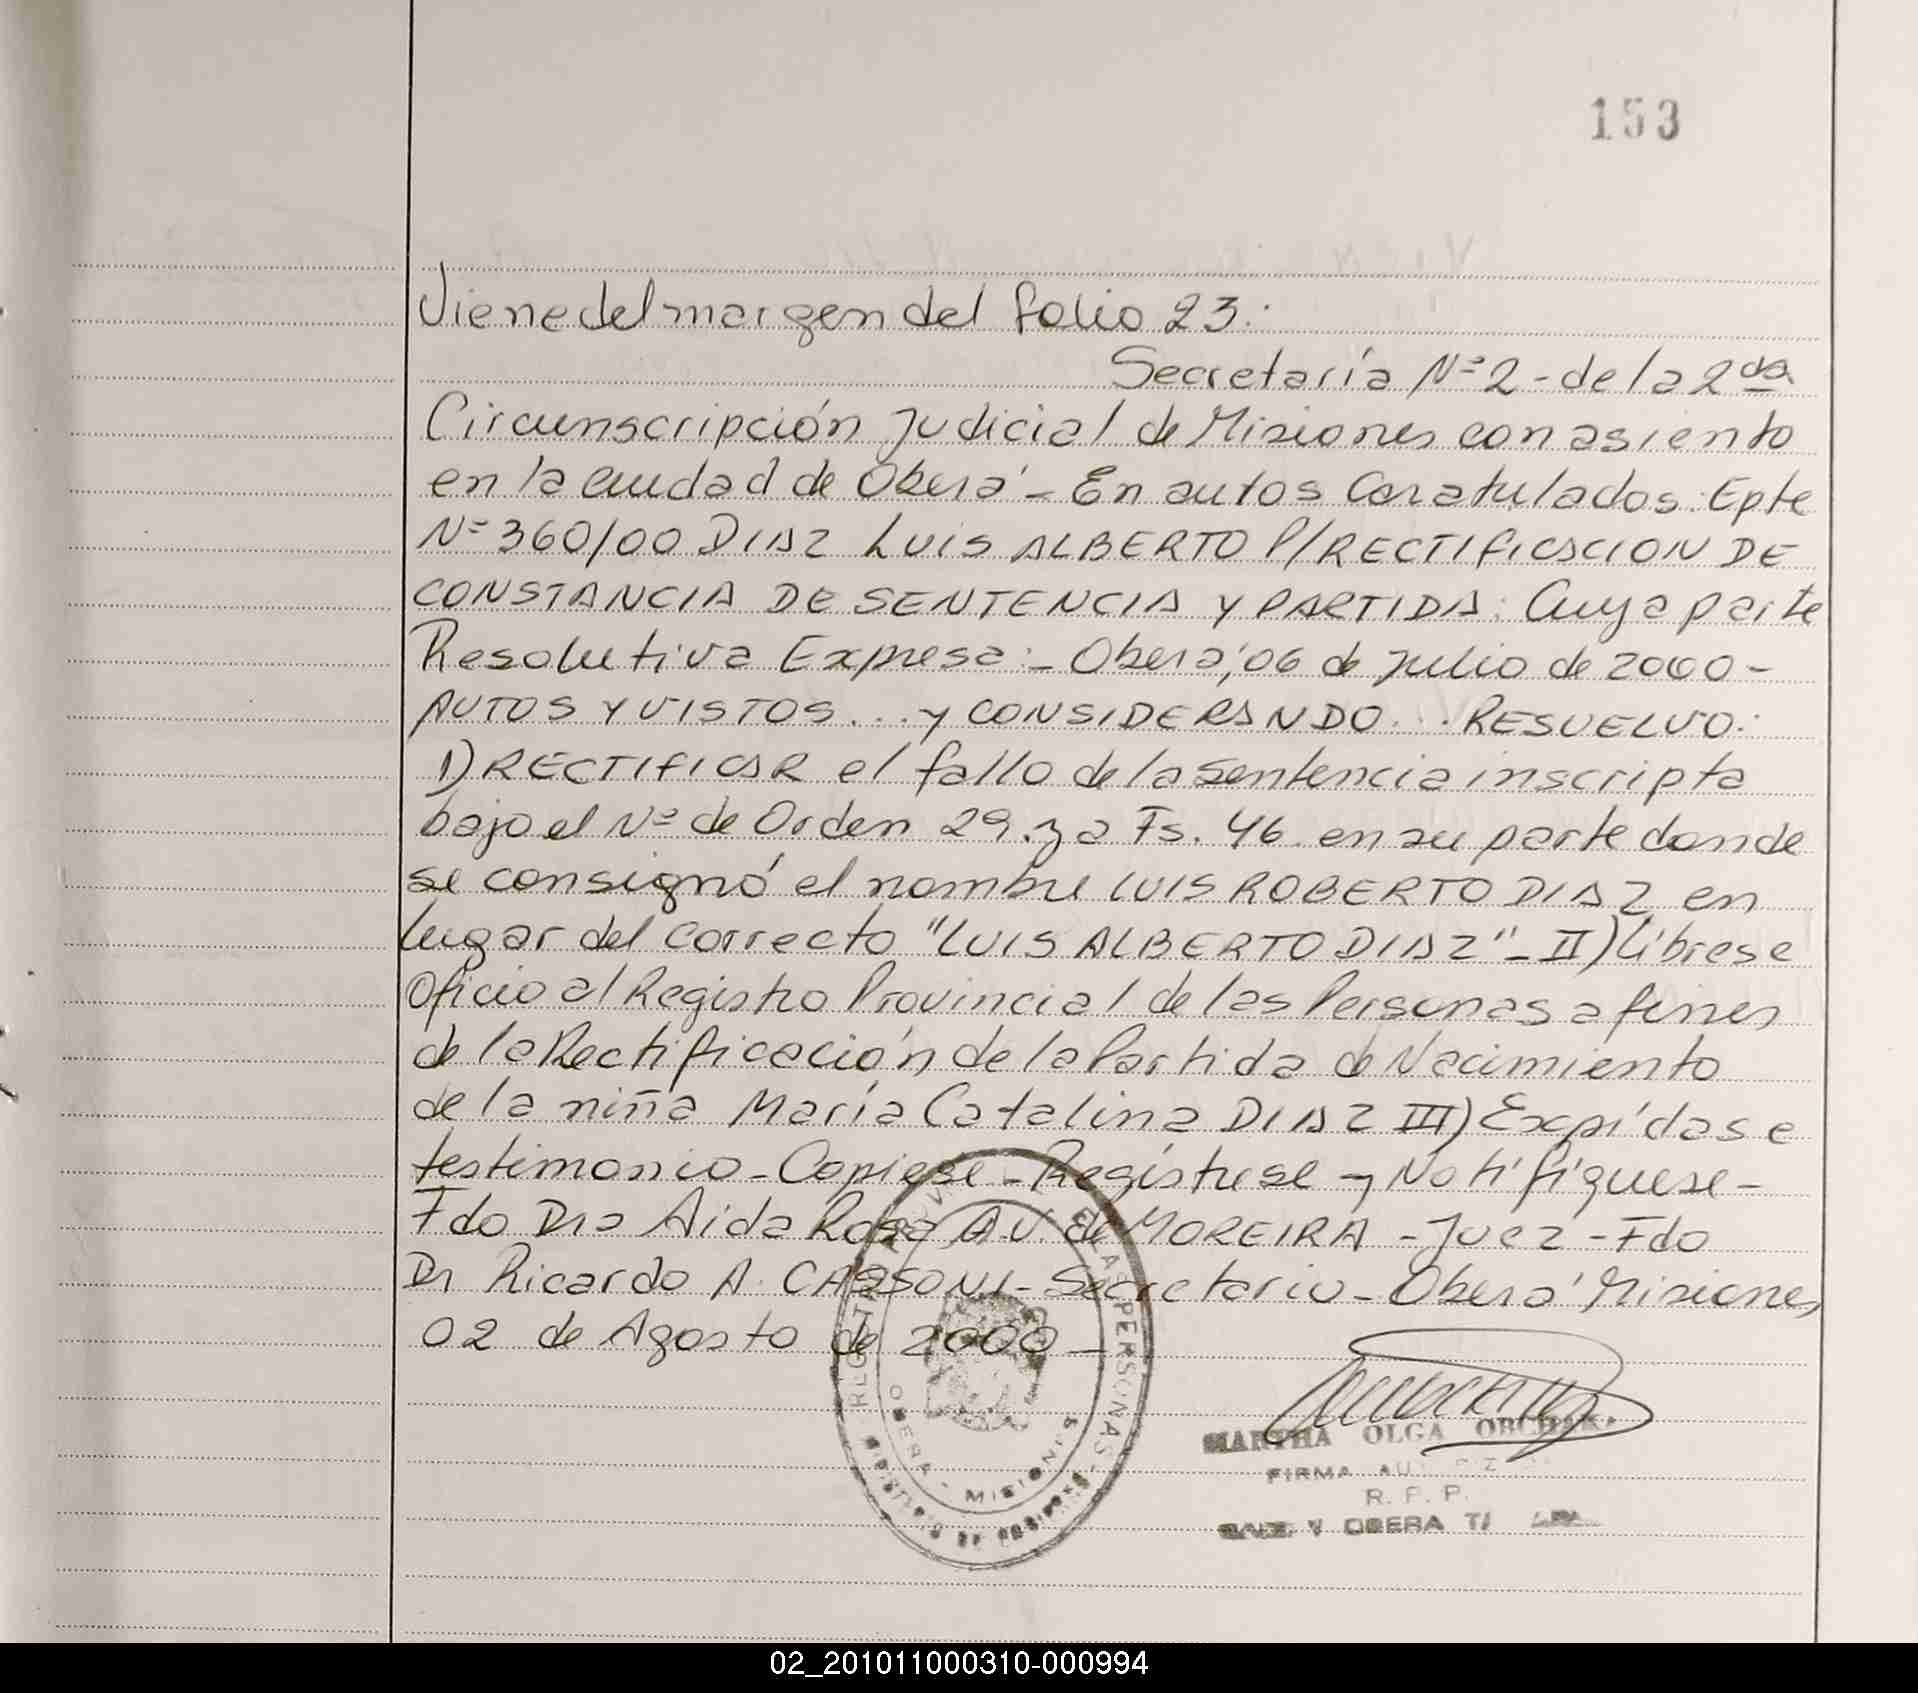 153
Viene del margen del folio 23:
Secretaría Nº 2 - de la 2da
Circunscripción Judicial de Misiones con asiento
en la ciudad de Oberá - En autos Caratulados: Epte
Nº 360/00 DIAZ LUIS ALBERTO P/RECTIFICACION DE
CONSTANCIA DE SENTENCIA Y PARTIDA: Cuya parte
Resolutiva Expresa: - Oberá, 06 de Julio de 2000 -
AUTOS Y VISTOS... y CONSIDERANDO... RESUELVO:
1) RECTIFICAR el fallo de la sentencia inscripta
bajo el Nº de Orden 29. y a Fs. 46 en su parte donde
se consignó el nombre LUIS ROBERTO DIAZ en
lugar del correcto "LUIS ALBERTO DIAZ" - II) Líbrese
Oficio al Registro Provincial de las Personas a fines
de la Rectificación de la Partida de Nacimiento
de la niña María Catalina DIAZ III) Expídase
testimonio - Copiese - Regístrese y Notifíquese -
Fdo Dra Aida Rosa A.V. de MOREIRA - Juez - Fdo
Dr Ricardo A. CASSONI - Secretario - Oberá Misiones,
02 de Agosto de 2000 -
LAS PERSONAS
OBERA - MISIONES
MARTHA OLGA
FIRMA
R. P. P.
OBERA
02_201011000310-000994